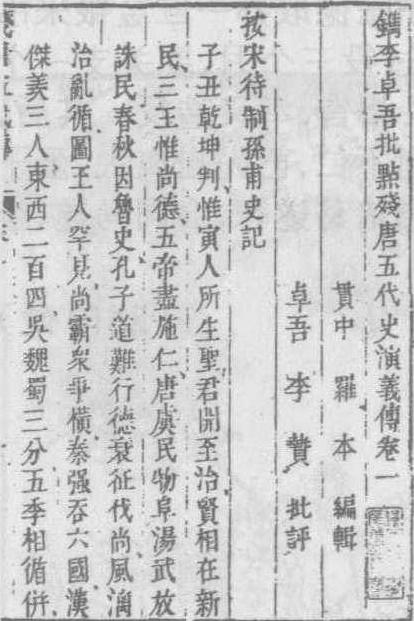 鐫李卓吾批點殘唐五代史演義傳卷一
貫中 羅本 編輯
卓吾 李贄 批評
按宋待制孫甫史記
子丑乾坤判惟寅人所生聖君開至治賢相在新
民三王惟尚德五帝盡施仁唐虞民物阜湯武放
誅民春秋因魯史孔子道難行德衰征伐尚風漓
治亂循圖王人罕見尚霸衆爭橫秦强吞六國漢
傑羡三人東西二百四吳魏蜀三分五季相循併